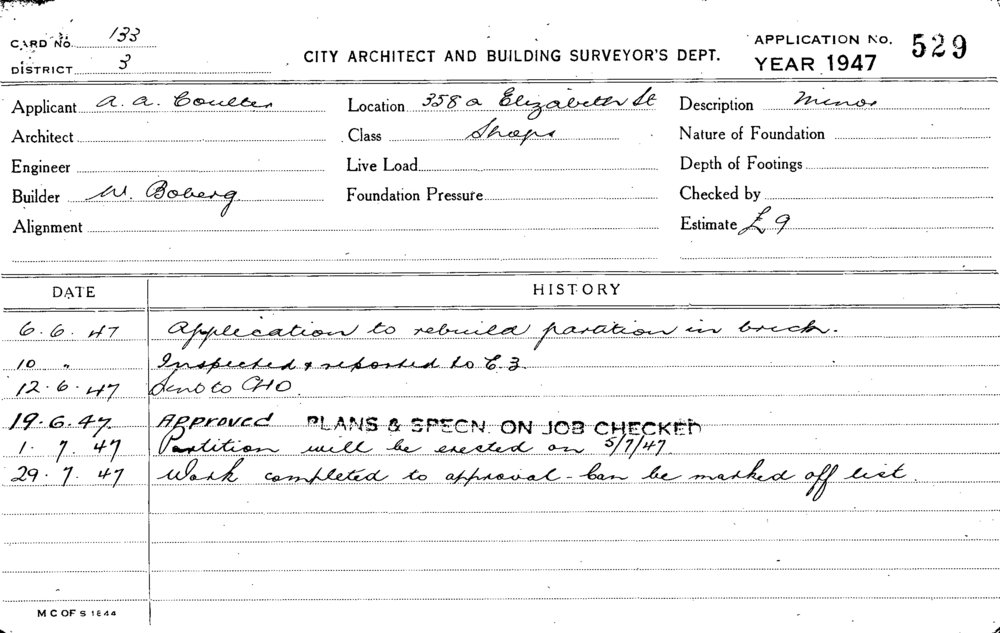 CARD No. 133
DISTRICT 3
CITY ARCHITECT AND BUILDING SURVEYOR'S DEPT.
APPLICATION No. 529
YEAR 1947
Applicant A. A. Coulter Location 358a Elizabeth St Description Minor
Architect Class Shops Nature of Foundation
Engineer Live Load Depth of Footings
Builder W. Boberg Foundation Pressure Checked by
Alignment Estimate £9
DATE HISTORY
6.6.47 Application to rebuild partition in brick.
10 " Inspected & reported to C.3.
12.6.47 Sent to CHO.
19.6.47 Approved PLANS & SPECN. ON JOB CHECKED
1.7.47 Partition will be erected on 5/7/47
29.7.47 Work completed to approval - Can be marked off list.
M C OF S 1844